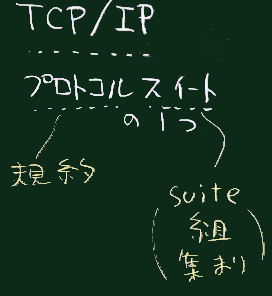 TCP/IP
プロトコルスイート
の1つ
規約
suite
組
集まり